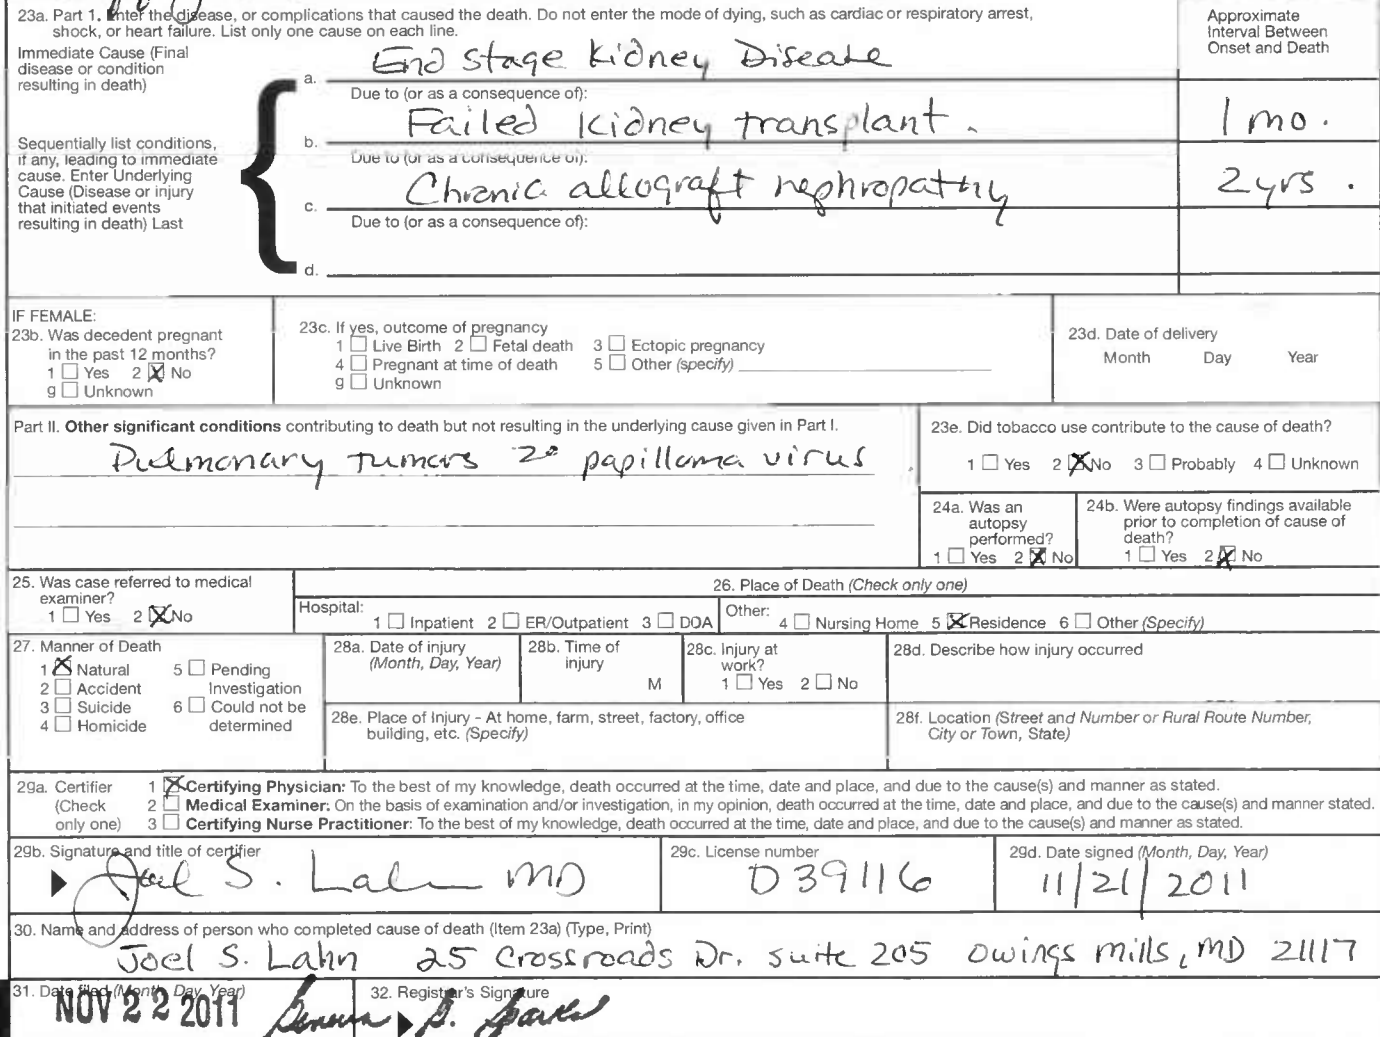 23a. Part 1. Enter the disease, or complications that caused the death. Do not enter the mode of dying, such as cardiac or respiratory arrest,
shock, or heart failure. List only one cause on each line.
Approximate
Interval Between
Onset and Death
Immediate Cause (Final
disease or condition
resulting in death)
a. End stage Kidney Disease
Due to (or as a consequence of):
b. Failed Kidney transplant. 1 mo.
Sequentially list conditions,
if any, leading to immediate
cause. Enter Underlying
Cause (Disease or injury
that initiated events
resulting in death) Last
Due to (or as a consequence of):
c. Chronic allograft nephropathy 2 yrs.
Due to (or as a consequence of):
d.
IF FEMALE:
23b. Was decedent pregnant
in the past 12 months?
1 ☐ Yes 2 ☒ No
9 ☐ Unknown
23c. If yes, outcome of pregnancy
1 ☐ Live Birth 2 ☐ Fetal death 3 ☐ Ectopic pregnancy
4 ☐ Pregnant at time of death 5 ☐ Other (specify)
9 ☐ Unknown
23d. Date of delivery
Month Day Year
Part II. Other significant conditions contributing to death but not resulting in the underlying cause given in Part I.
Pulmonary tumors 2° papilloma virus
23e. Did tobacco use contribute to the cause of death?
1 ☐ Yes 2 ☒ No 3 ☐ Probably 4 ☐ Unknown
24a. Was an
autopsy
performed?
1 ☐ Yes 2 ☒ No
24b. Were autopsy findings available
prior to completion of cause of
death?
1 ☐ Yes 2 ☒ No
25. Was case referred to medical
examiner?
1 ☐ Yes 2 ☒ No
26. Place of Death (Check only one)
Hospital:
1 ☐ Inpatient 2 ☐ ER/Outpatient 3 ☐ DOA
Other:
4 ☐ Nursing Home 5 ☒ Residence 6 ☐ Other (Specify)
27. Manner of Death
1 ☒ Natural
2 ☐ Accident
3 ☐ Suicide
4 ☐ Homicide
5 ☐ Pending
Investigation
6 ☐ Could not be
determined
28a. Date of injury
(Month, Day, Year)
28b. Time of
injury
M
28c. Injury at
work?
1 ☐ Yes 2 ☐ No
28d. Describe how injury occurred
28e. Place of Injury - At home, farm, street, factory, office
building, etc. (Specify)
28f. Location (Street and Number or Rural Route Number,
City or Town, State)
29a. Certifier
(Check
only one)
1 ☒ Certifying Physician: To the best of my knowledge, death occurred at the time, date and place, and due to the cause(s) and manner as stated.
2 ☐ Medical Examiner: On the basis of examination and/or investigation, in my opinion, death occurred at the time, date and place, and due to the cause(s) and manner stated.
3 ☐ Certifying Nurse Practitioner: To the best of my knowledge, death occurred at the time, date and place, and due to the cause(s) and manner as stated.
29b. Signature and title of certifier
Joel S. Lahn MD
29c. License number
D39116
29d. Date signed (Month, Day, Year)
11/21/2011
30. Name and address of person who completed cause of death (Item 23a) (Type, Print)
Joel S. Lahn 25 Crossroads Dr. suite 205 Owings Mills, MD 21117
31. Date filed (Month, Day, Year)
NOV 22 2011
32. Registrar's Signature